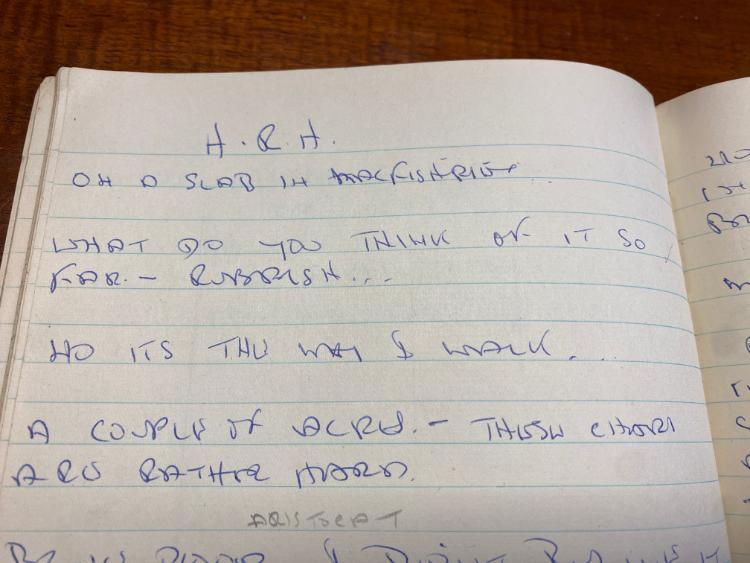 H.R.H.
ON A SLAB IN MACFISHERIES
WHAT DO YOU THINK OF IT SO
FAR - RUBBISH...
NO ITS THE WAY I WALK....
A COUPLE OF ACRES. - THESE CHAIRS
ARE RATHER HARD.
ARISTOCRAT